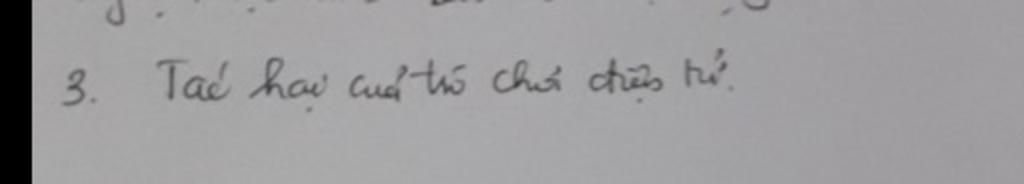 3. Tác hại của trò chơi điện tử.